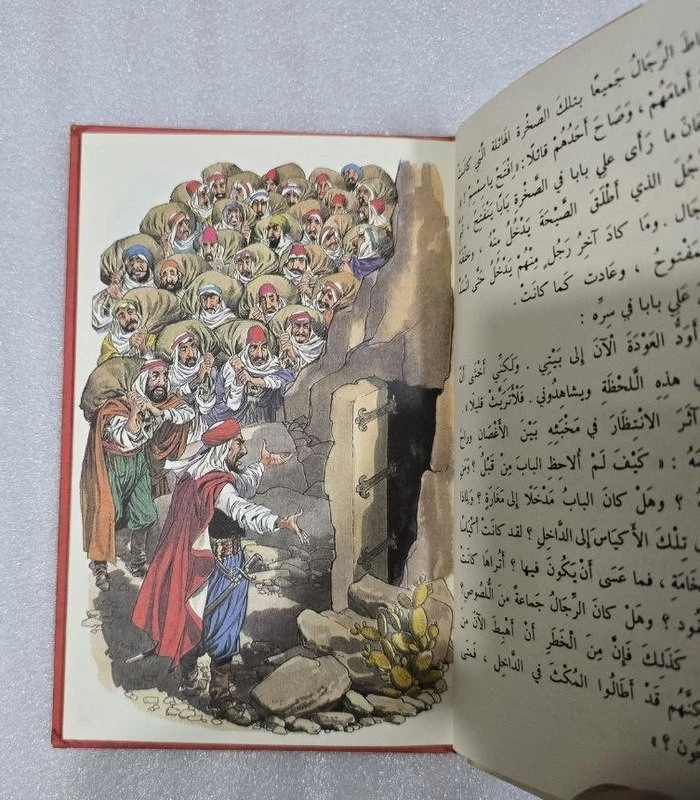 الرِّجَالُ جَمِيعًا بِتلكَ الصَّخْرة الهَائلة الَّتي كانَتْ
أَمامَهُمْ ، وَصَاحَ أَحَدُهُمْ قائلًا : « افتَحْ يا سِمْسِمُ !
ما رَأى علي بابا في الصَّخْرة بَابًا يَنْفَتِحُ ،
الذي أَطْلَقَ الصَّيْحَةَ يَدْخُلُ مِنْهُ ، وخَلْفَهُ
. ومَا كادَ آخِرُ رَجُلٍ مِنْهُمْ يَدْخُلُ حَتَّى
، وعَادت كَما كانَتْ .
عَلي بابا في سِرِّه :
أَودُّ العَوْدَةَ الْآنَ إلى بَيْتي . وَلَكِنِّي أَخْشَى أَنْ
هذِهِ اللَّحْظَة ويشاهدُوني . فَلْأَتَرَيَّثْ قَلِيلًا » .
آثَرَ الانْتِظَارَ في مَخْبَئِه بَيْنَ الأَغْصَانِ وراحَ
: « كَيْفَ لَمْ أُلاحِظِ البابَ مِن قَبْلُ ؟ وَمَنْ
؟ وهَلْ كانَ البابُ مَدْخَلًا إلى مَغَارَةٍ ؟ وَلِمَاذا
تِلْكَ الأَكْيَاسِ إلى الدَّاخِلِ ؟ لقد كَانَتْ أَكْيَاسًا
، فما عَسَى أَنْ يَكُونَ فيها ؟ أتُراهَا كانَتْ
؟ وهَلْ كانَ الرِّجَالُ جماعةً مِنَ اللُّصُوصِ ؟
كَذلِكَ فَإِنَّ مِنَ الْخَطَرِ أَنْ أَهْبِطَ الآنَ مِن
قَدْ أَطَالُوا المُكْثَ في الدَّاخِلِ ، فَمَتَى
؟ »